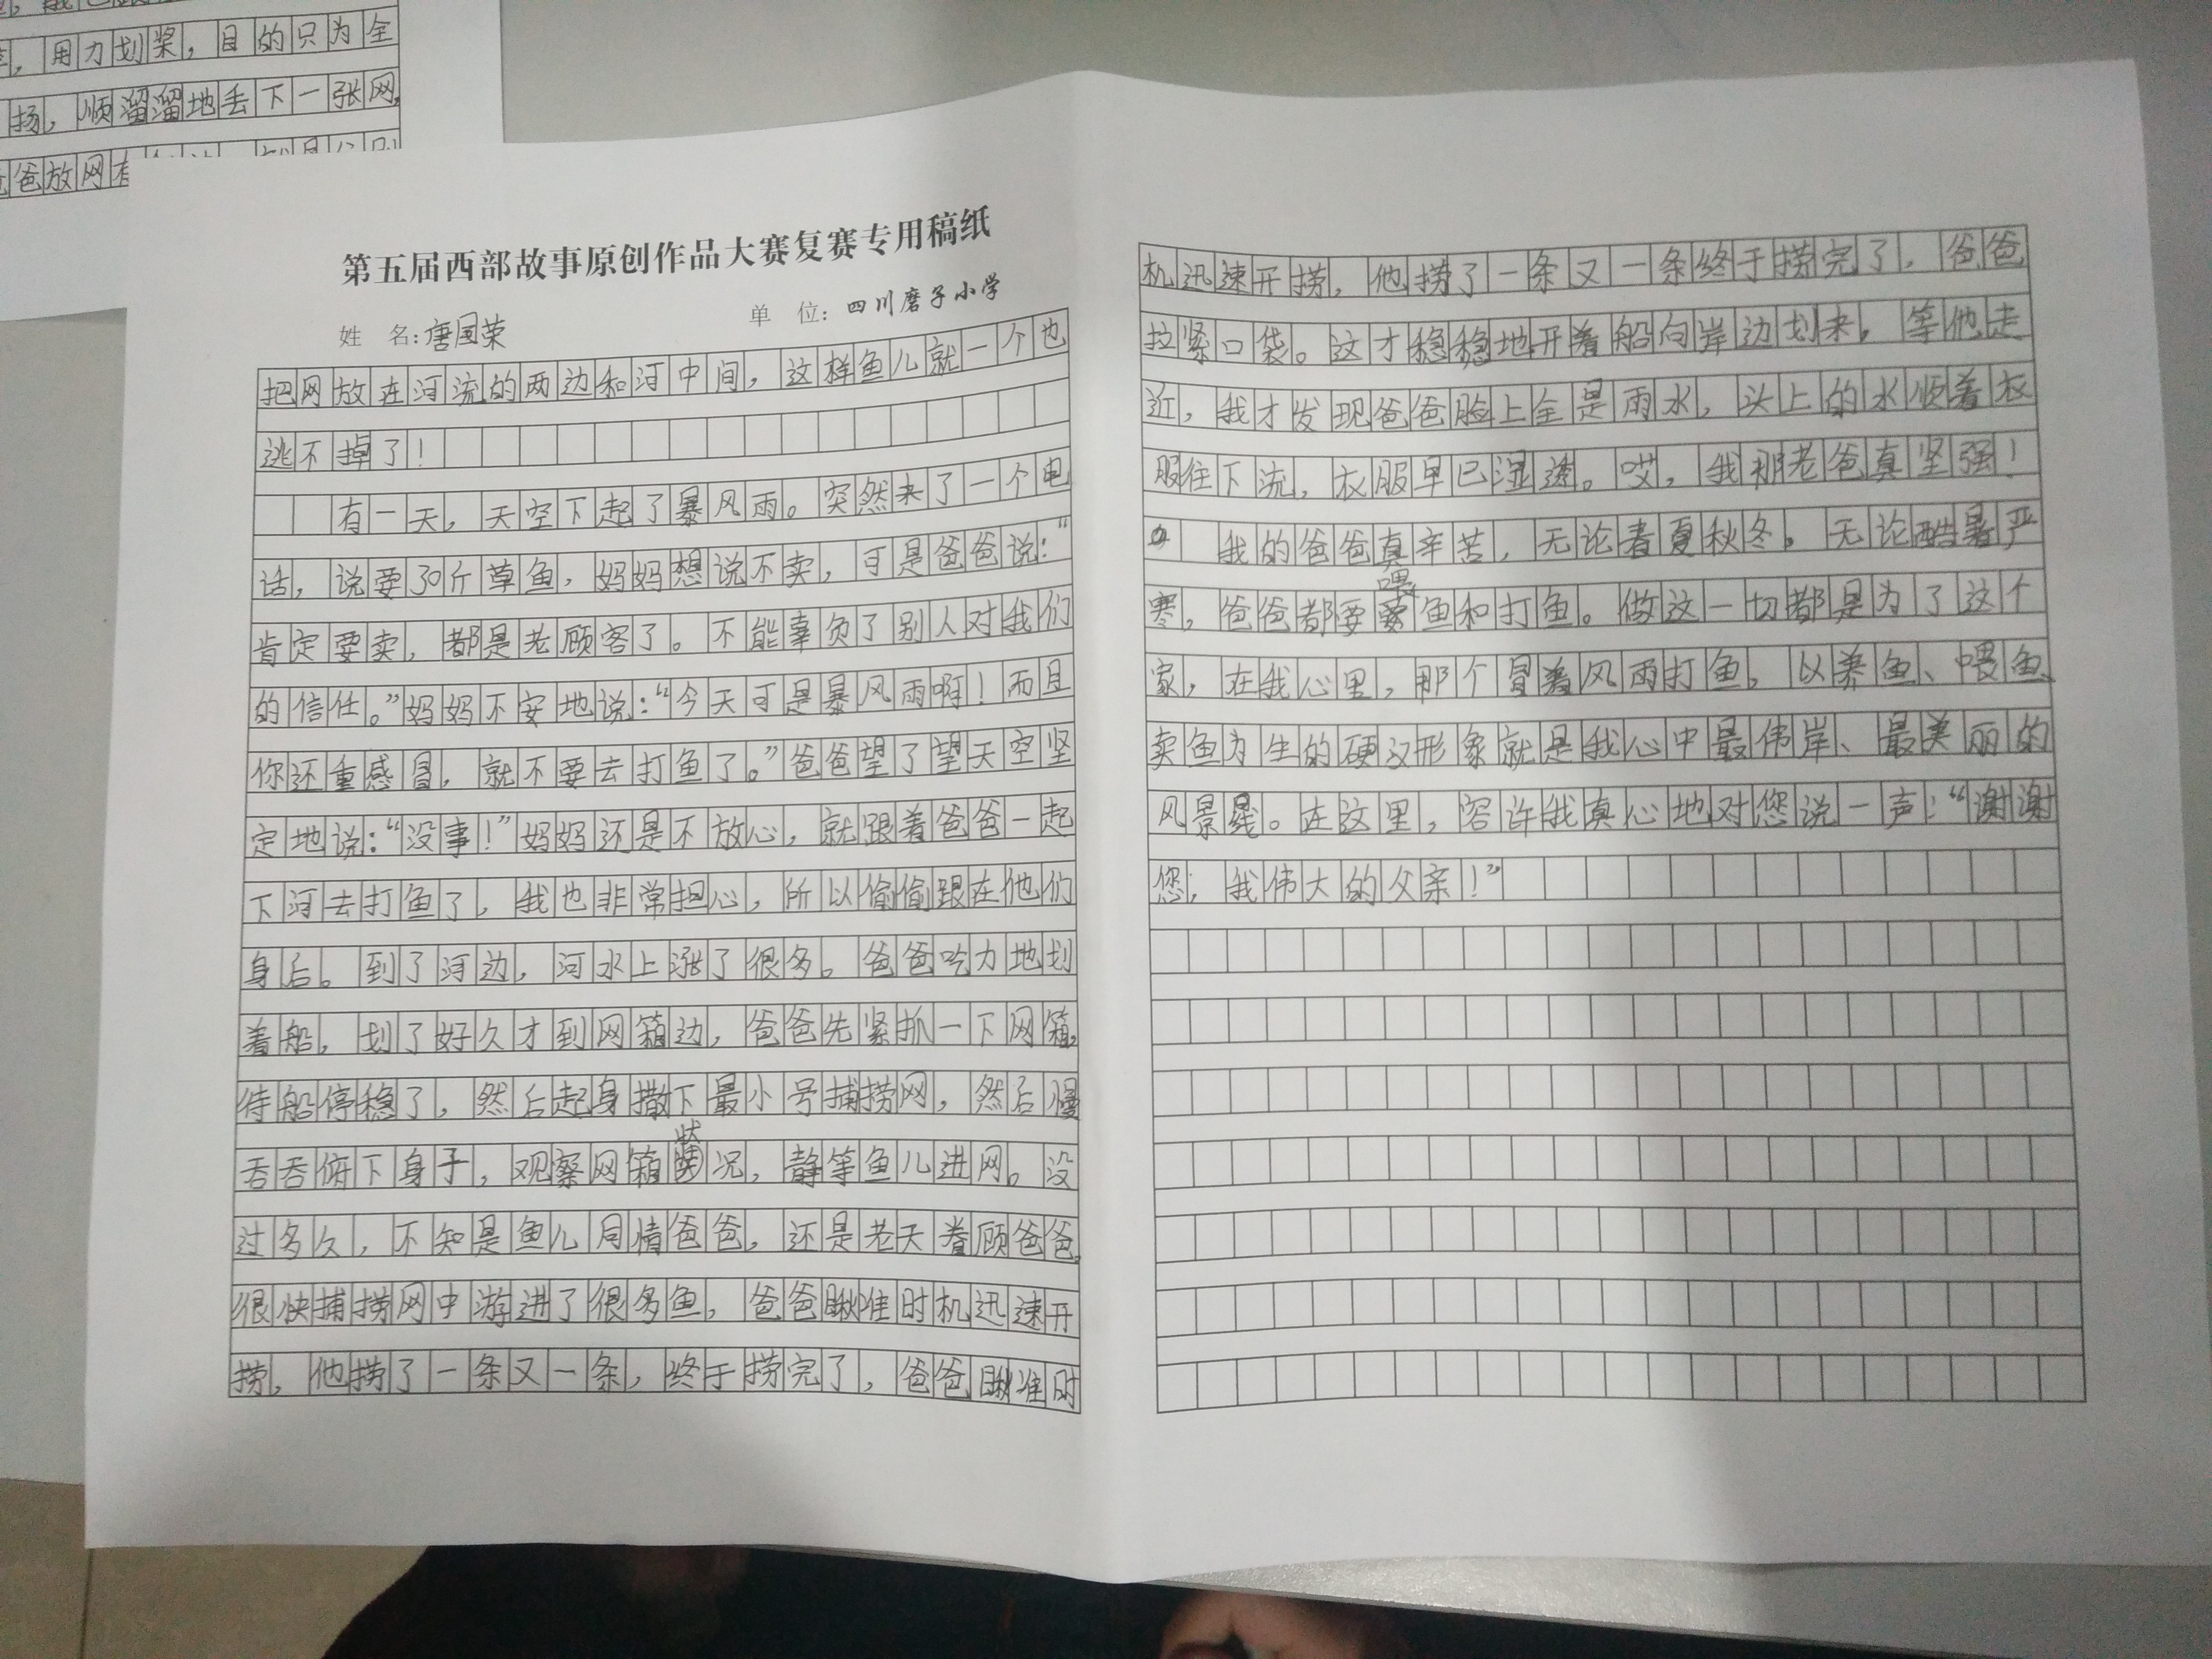 ，用力划桨，目的只为全
扬，顺溜溜地丢下一张网，
爸放网有
第五届西部故事原创作品大赛复赛专用稿纸
姓 名：唐国荣 单 位：四川磨子小学
把网放在河流的两边和河中间，这样鱼儿就一个也
逃不掉了！
有一天，天空下起了暴风雨。突然来了一个电
话，说要30斤草鱼，妈妈想说不卖，可是爸爸说：“
肯定要卖，都是老顾客了。不能辜负了别人对我们
的信任。”妈妈不安地说：“今天可是暴风雨啊！而且
你还重感冒，就不要去打鱼了。”爸爸望了望天空坚
定地说：“没事！”妈妈还是不放心，就跟着爸爸一起
下河去打鱼了，我也非常担心，所以偷偷跟在他们
身后。到了河边，河水上涨了很多。爸爸吃力地划
着船，划了好久才到网箱边，爸爸先紧抓一下网箱，
待船停稳了，然后起身撒下最小号捕捞网，然后慢
吞吞俯下身子，观察网箱状况，静等鱼儿进网。没
过多久，不知是鱼儿同情爸爸，还是老天眷顾爸爸，
很快捕捞网中游进了很多鱼，爸爸瞅准时机迅速开
捞，他捞了一条又一条，终于捞完了，爸爸瞅准时
机迅速开捞，他捞了一条又一条终于捞完了，爸爸
拉紧口袋。这才稳稳地开着船向岸边划来。等他走
近，我才发现爸爸脸上全是雨水，头上的水顺着衣
服往下流，衣服早已湿透。哎，我那老爸真坚强！
我的爸爸真辛苦，无论春夏秋冬。无论酷暑严
寒，爸爸都要喂鱼和打鱼。做这一切都是为了这个
家，在我心里，那个冒着风雨打鱼，以养鱼、喂鱼、
卖鱼为生的硬汉形象就是我心中最伟岸、最美丽的
风景线。在这里，容许我真心地对您说一声：“谢谢
您，我伟大的父亲！”